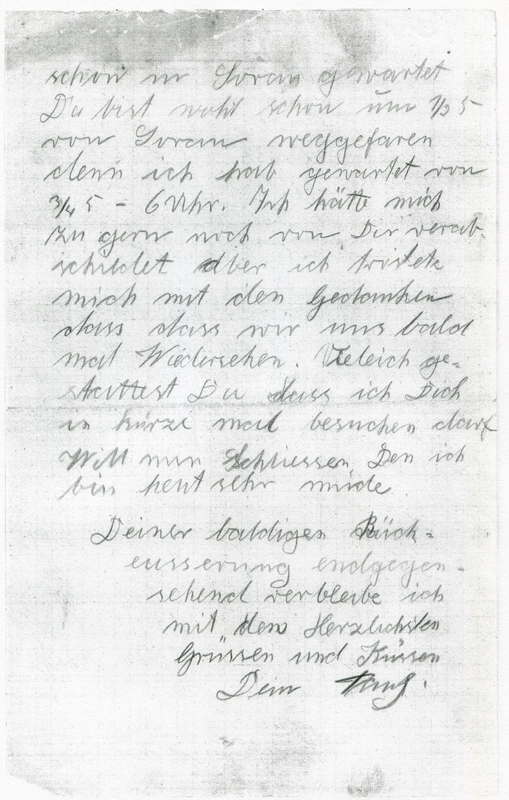 schon in Soran gewartet
Du bist wohl schon um 1/2 5
von Soran weggefaren
denn ich hab gewartet von
3/4 5 - 6 Uhr. Ich hätte mich
zu gern noch von Dir verab-
schiedet aber ich tröste
mich mit den Gedanken
dass dass wir uns bald
mal Wiedersehen. Vieleich ge=
stattest Du dass ich Dich
in kürze mal besuchen darf
Will nun Schliessen Den ich
bin heut sehr müde
Deiner baldigen Rück=
eusserung endgegen-
sehend verbleibe ich
mit den Herzlichsten
Grüssen und Küssen
Dein